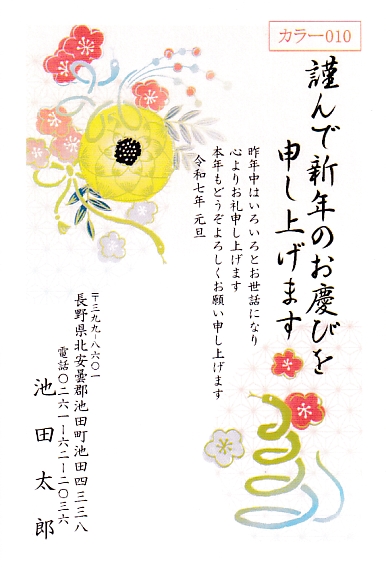 カラー010
謹んで新年のお慶びを
申し上げます
昨年中はいろいろとお世話になり
心よりお礼申し上げます
本年もどうぞよろしくお願い申し上げます
令和七年 元旦
〒三九九−八六〇一
長野県北安曇郡池田町池田四三三八
電話〇二六一−六二−二〇三六
池田太郎